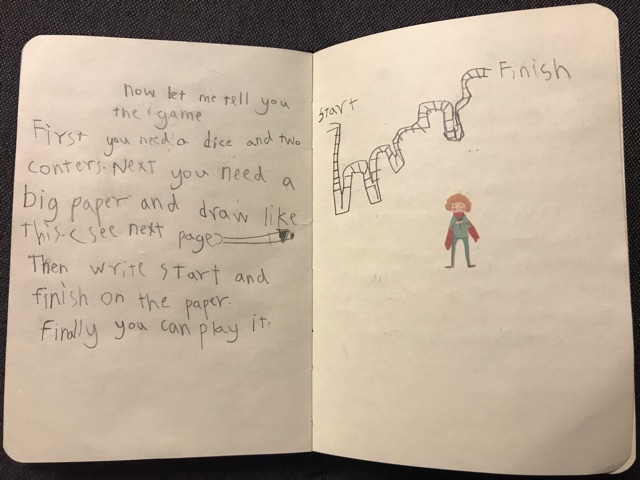 now let me tell you
the game
First you need a dice and two
conters. Next you need a
big paper and draw like
this. (see next page)
Then write start and
finish on the paper.
Finally you can play it.
Start
Finish